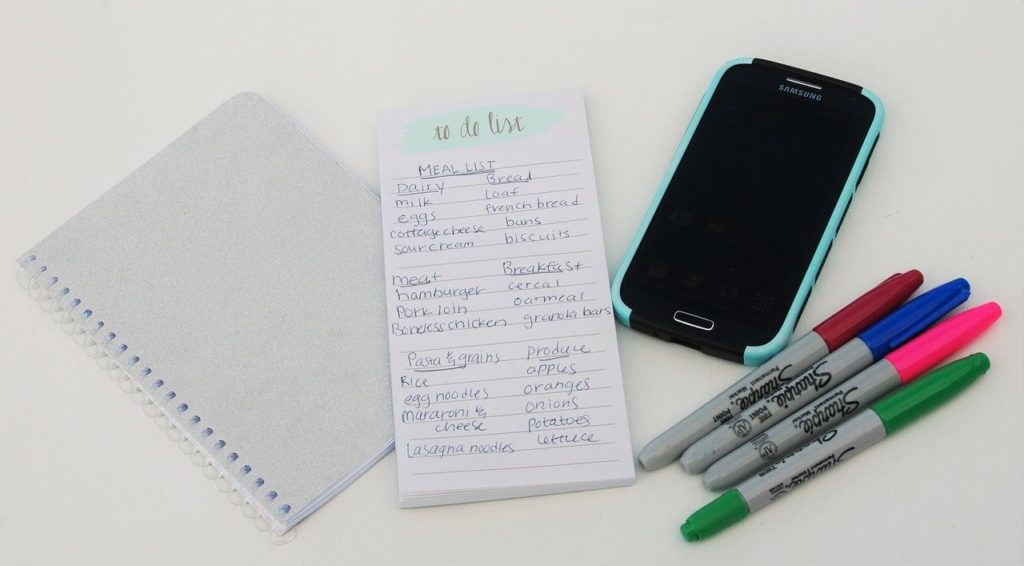 to do list
MEAL LIST
Dairy
milk
eggs
cottage cheese
sour cream
Bread
loaf
french bread
buns
biscuits
meat
hamburger
Pork loin
Boneless chicken
Breakfast
cereal
oatmeal
granola bars
Pasta & grains
Rice
egg noodles
mararoni &
cheese
lasagna noodles
produce
apples
oranges
onions
potatoes
lettuce
SAMSUNG
Sharpie
FINE POINT
Permanent Marker
Sharpie
FINE POINT
Permanent Marker
Sharpie
Sharpie